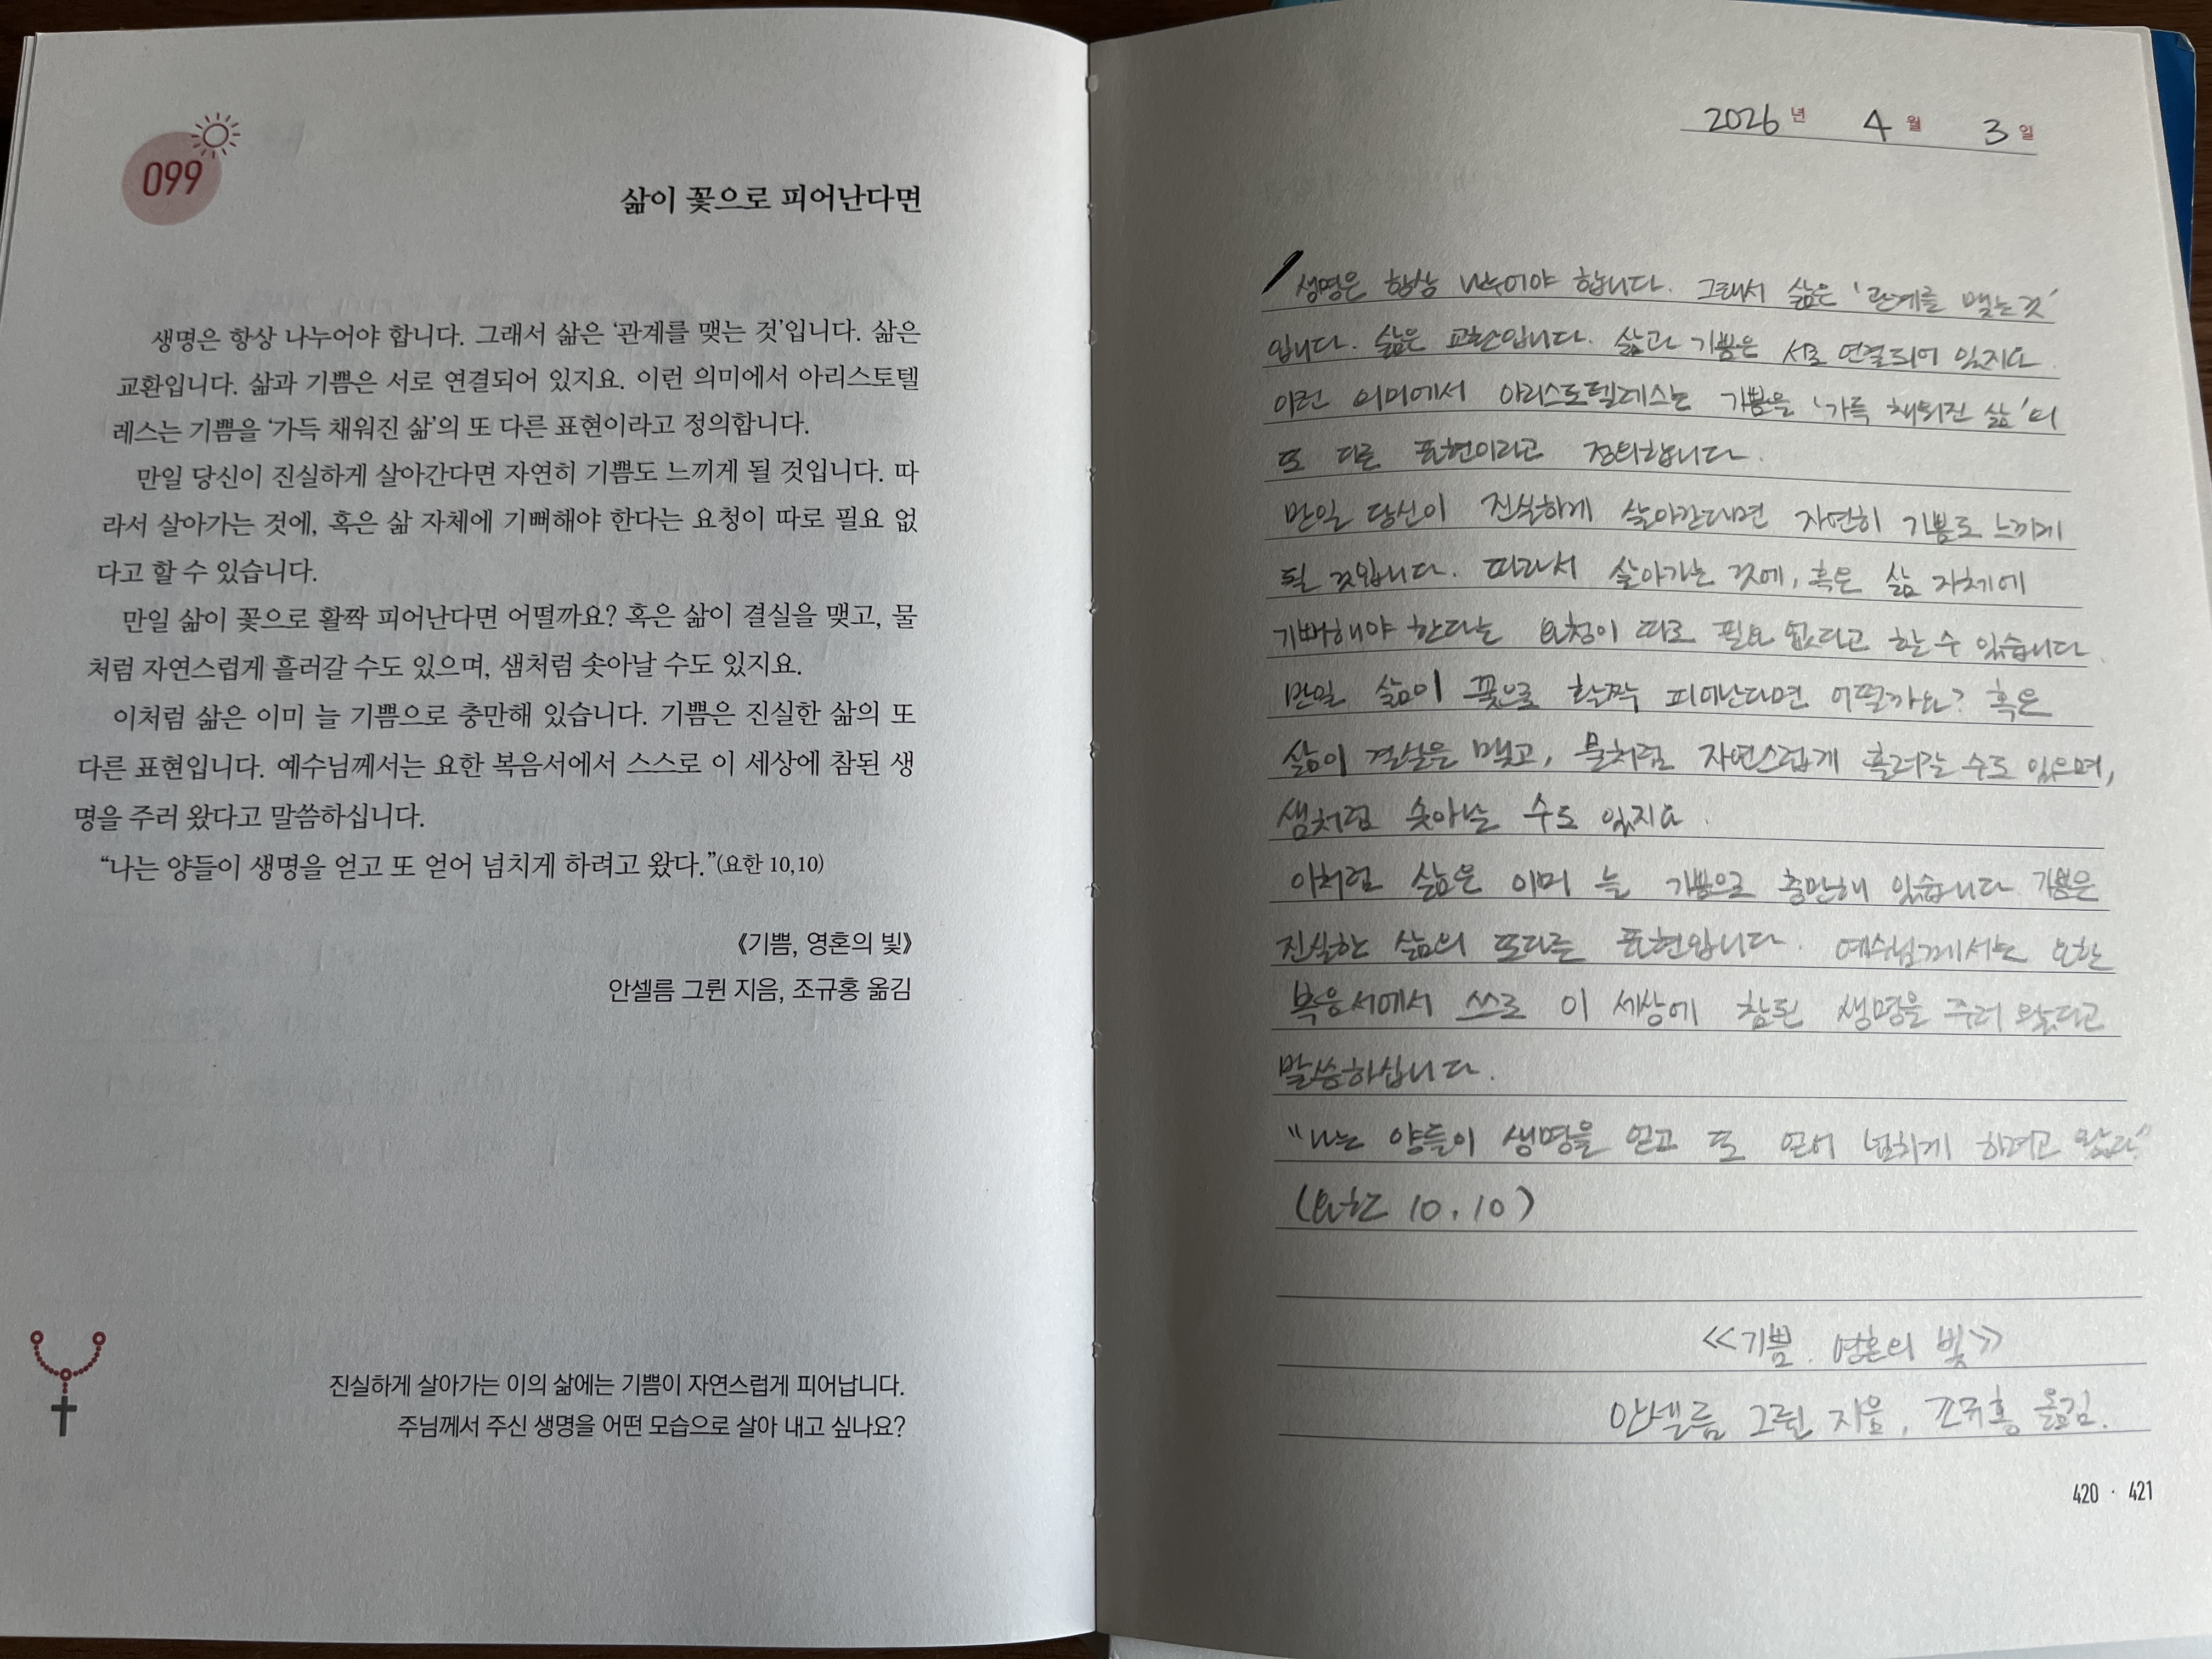 099
삶이 꽃으로 피어난다면
생명은 항상 나누어야 합니다. 그래서 삶은 ‘관계를 맺는 것’입니다. 삶은
교환입니다. 삶과 기쁨은 서로 연결되어 있지요. 이런 의미에서 아리스토텔
레스는 기쁨을 ‘가득 채워진 삶’의 또 다른 표현이라고 정의합니다.
만일 당신이 진실하게 살아간다면 자연히 기쁨도 느끼게 될 것입니다. 따
라서 살아가는 것에, 혹은 삶 자체에 기뻐해야 한다는 요청이 따로 필요 없
다고 할 수 있습니다.
만일 삶이 꽃으로 활짝 피어난다면 어떨까요? 혹은 삶이 결실을 맺고, 물
처럼 자연스럽게 흘러갈 수도 있으며, 샘처럼 솟아날 수도 있지요.
이처럼 삶은 이미 늘 기쁨으로 충만해 있습니다. 기쁨은 진실한 삶의 또
다른 표현입니다. 예수님께서는 요한 복음서에서 스스로 이 세상에 참된 생
명을 주러 왔다고 말씀하십니다.
“나는 양들이 생명을 얻고 또 얻어 넘치게 하려고 왔다.”(요한 10,10)
《기쁨, 영혼의 빛》
안셀름 그륀 지음, 조규홍 옮김
진실하게 살아가는 이의 삶에는 기쁨이 자연스럽게 피어납니다.
주님께서 주신 생명을 어떤 모습으로 살아 내고 싶나요?
2026년 4월 3일
생명은 항상 나누어야 합니다. 그래서 삶은 ‘관계를 맺는 것’
입니다. 삶은 교환입니다. 삶과 기쁨은 서로 연결되어 있지요.
이런 의미에서 아리스토텔레스는 기쁨을 ‘가득 채워진 삶’의
또 다른 표현이라고 정의합니다.
만일 당신이 진실하게 살아간다면 자연히 기쁨도 느끼게
될 것입니다. 따라서 살아가는 것에, 혹은 삶 자체에
기뻐해야 한다는 요청이 따로 필요 없다고 할 수 있습니다.
만일 삶이 꽃으로 활짝 피어난다면 어떨까요? 혹은
삶이 결실을 맺고, 물처럼 자연스럽게 흘러갈 수도 있으며,
샘처럼 솟아날 수도 있지요.
이처럼 삶은 이미 늘 기쁨으로 충만해 있습니다 기쁨은
진실한 삶의 또다른 표현입니다. 예수님께서는 요한
복음서에서 쓰로 이 세상에 참된 생명을 주러 왔다고
말씀하십니다.
“나는 양들이 생명을 얻고 또 얻어 넘치게 하려고 왔다.”
(요한 10.10)
<<기쁨. 영혼의 빛>>
안셀름 그륀 지음, 조규홍 옮김.
420 · 421